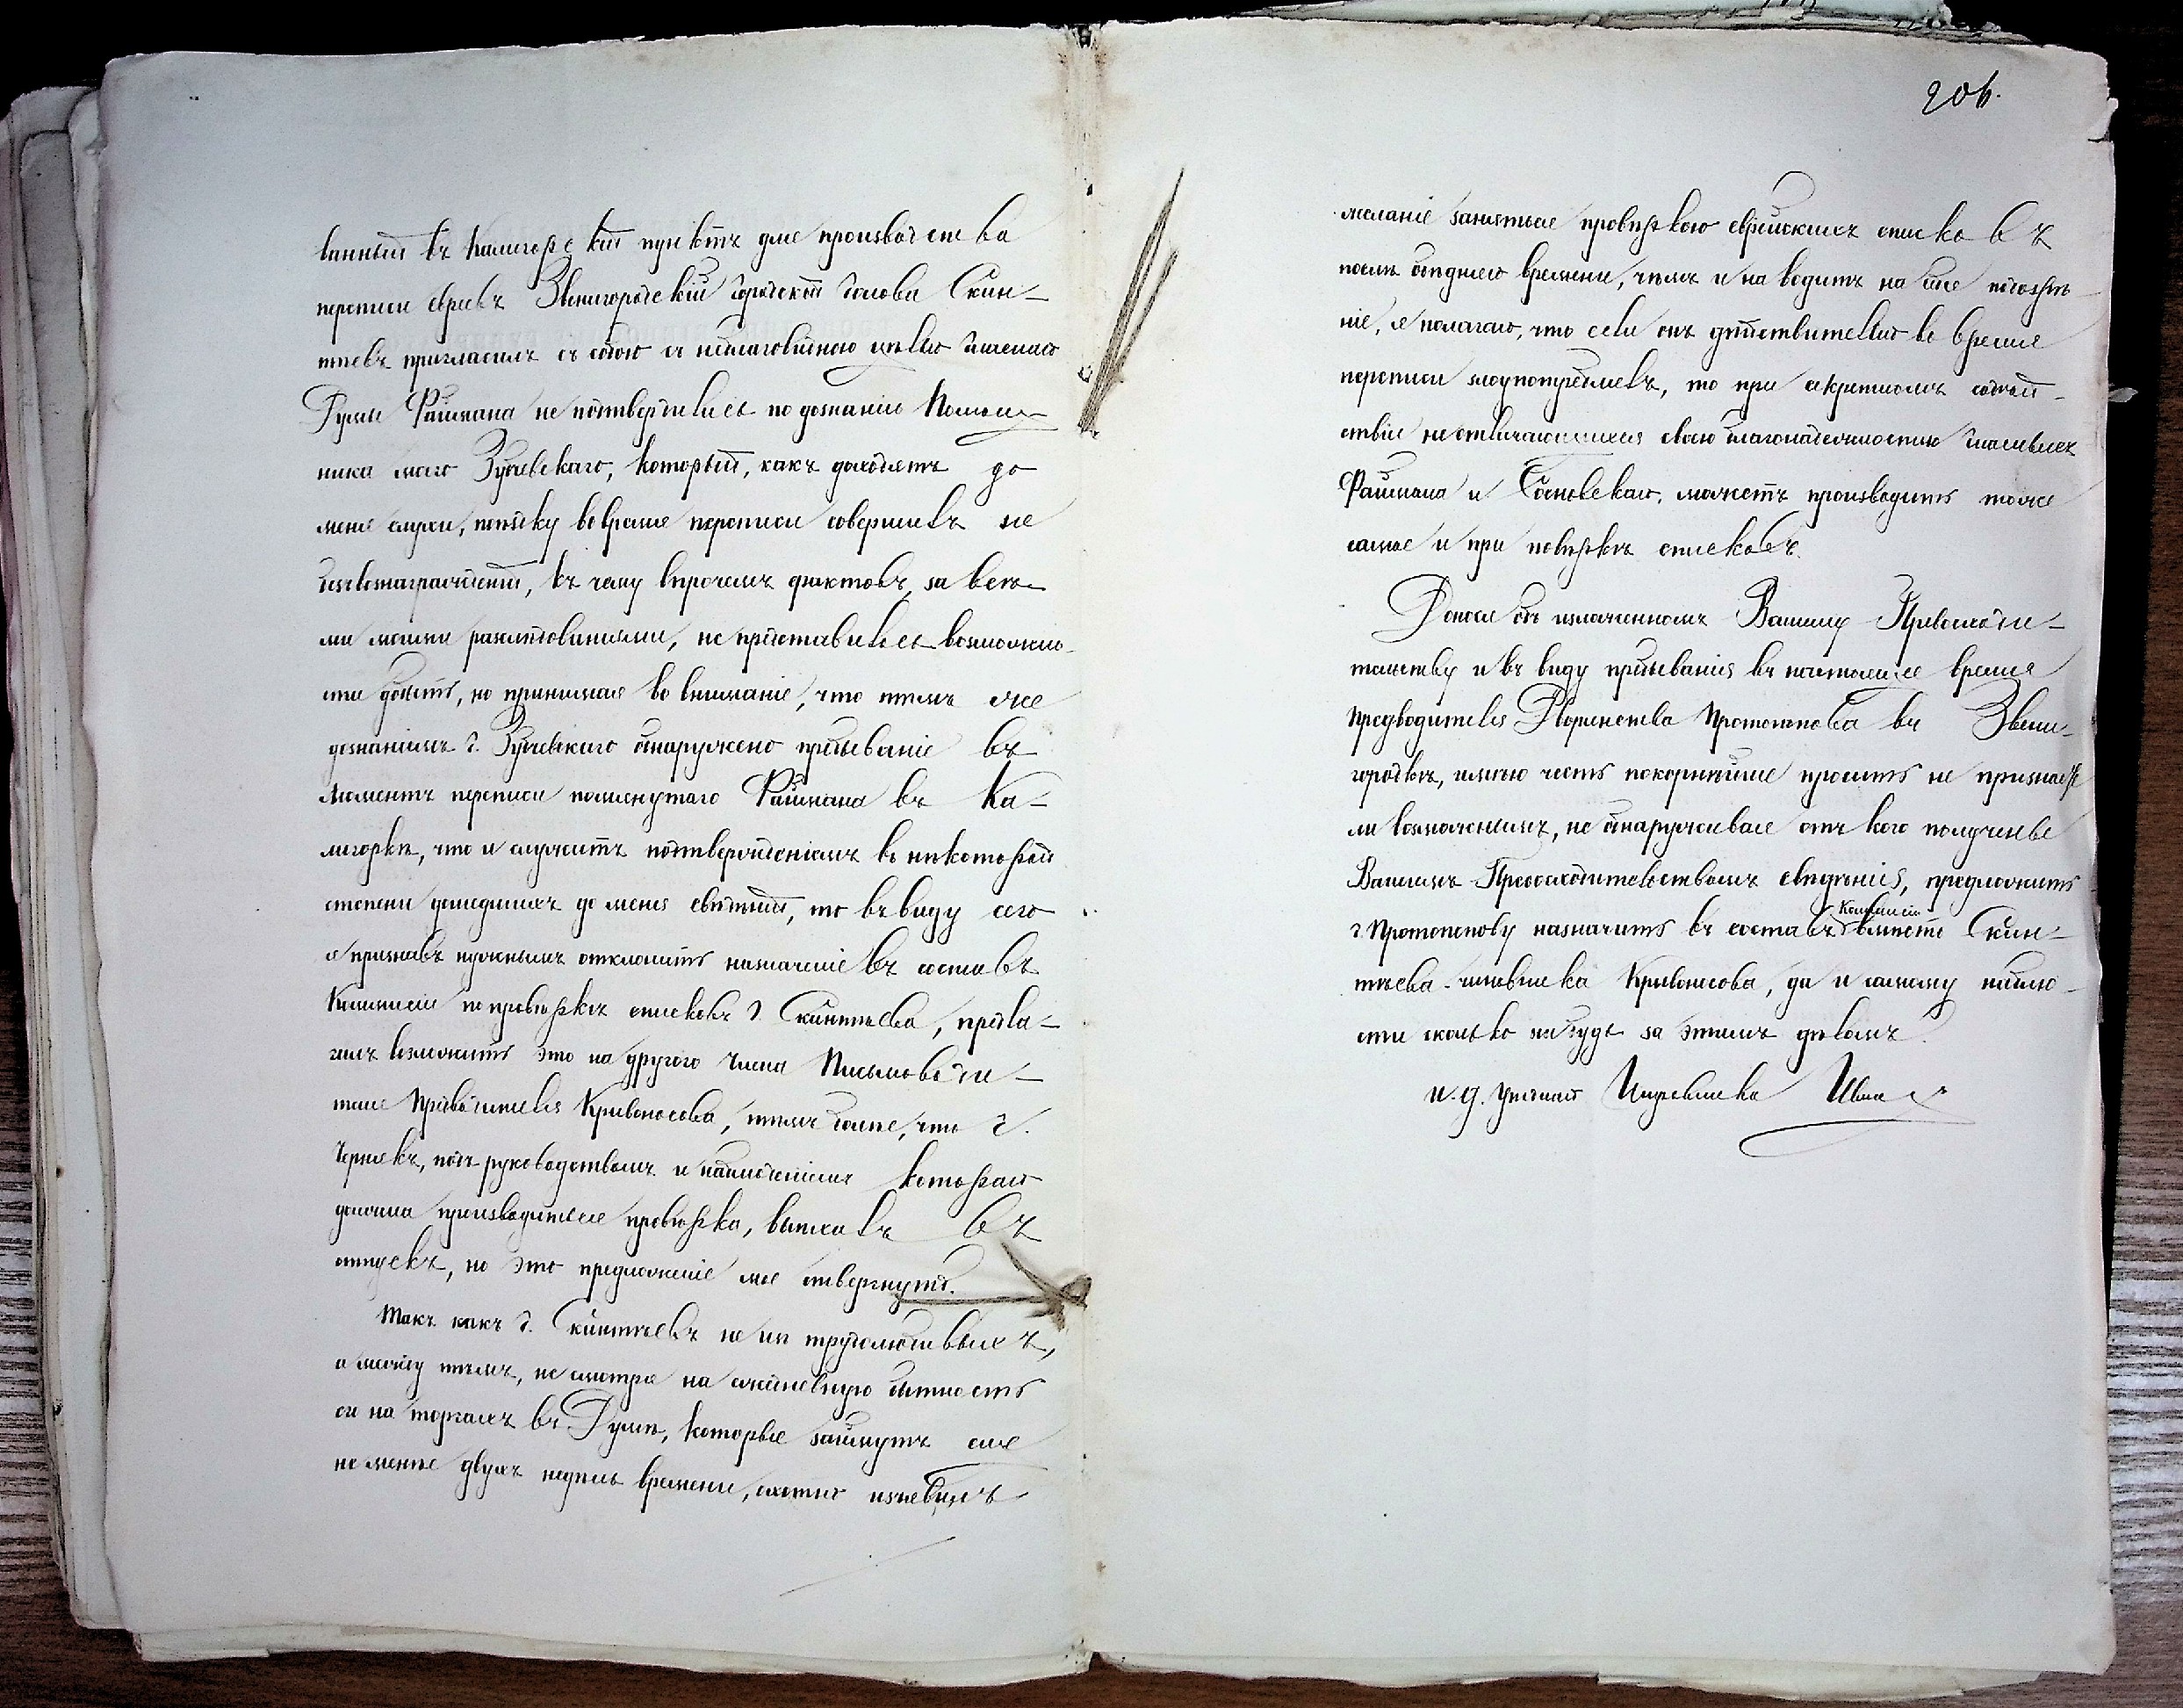 206.
ванный въ Калигорскій пунктъ для производства
переписи евреевъ Звенигородскій городской голова Скин-
тѣевъ пригласилъ съ собою съ неблаговидною цѣлью Гласнаго
Думы Файнмана не подтвердились по дознанію Помощ-
ника моего Зубчевскаго, который, какъ доходятъ до
меня слухи, поѣздку во время переписи совершилъ не
безвозмездно, къ чему впрочемъ фактовъ, за всѣ-
ми моими разслѣдованіями, не представилось возможно-
сти добыть, но принимая во вниманіе, что тѣмъ же
дознаніемъ г. Зубчевскаго обнаружено пребываніе въ
моментъ переписи помянутаго Файнмана въ Ка-
лигоркѣ, что и служитъ подтвержденіемъ въ нѣкоторой
степени дошедшихъ до меня свѣдѣній, то въ виду сего
я призналъ нужнымъ отклонить назначеніе въ составъ
Коммисіи по провѣркѣ списковъ г. Скинтѣева, предла-
галъ возложить это на другого Члена Письмоводи-
теля Предводителя Кривоносова, тѣмъ болѣе, что г.
Чернякъ, подъ руководствомъ и наблюденіемъ котораго
должна производиться провѣрка, выѣхалъ въ
отпускъ, но это предложеніе мое отвергнуто.
Такъ какъ г. Скинтѣевъ не из трудолюбивыхъ,
а между тѣмъ, не смотря на ежедневную бытность
его на торгахъ въ Думѣ, которые займутъ еще
не менѣе двухъ недѣль времени, охотно изъявилъ
желаніе заняться провѣркою еврейскихъ списковъ
послѣ обѣднего времени, чѣмъ и наводитъ на себя подозрѣ-
ніе, я полагаю, что если онъ дѣйствительно во время
переписи злоупотреблялъ, то при секретномъ содѣй-
ствіи не отличающихся своею благонадежностью Гласныхъ
Файнмана и Сосновскаго, можетъ производить тоже
самое и при повѣркѣ списковъ.
Донося объ изложенномъ Вашему Превосходи-
тельству и въ виду пребыванія въ настоящее время
Предводителя Дворянства Протопопова въ Звени-
городкѣ, имѣю честь покорнѣйше просить не признаете
ли возможнымъ, не обнаруживая отъ кого получены
Вашимъ Превосходительствомъ свѣдѣнія, предложить
г. Протопопову назначить въ составъ Коммисіи вмѣсто Скин-
тѣева - чиновника Кривоносова, да и самому наблю-
сти сколько нибудь за этимъ дѣломъ.
И. д. Уѣзднаго Исправника